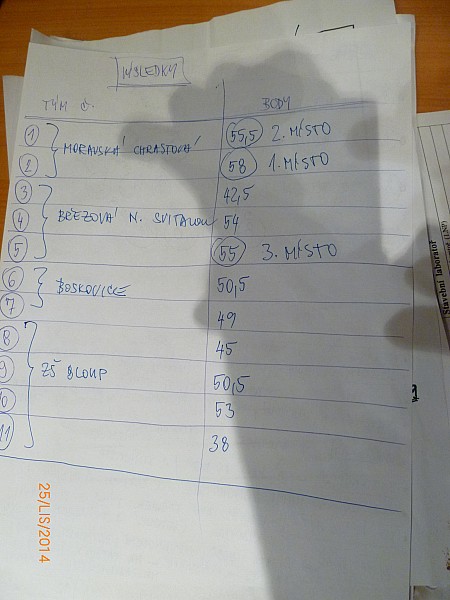 VÝSLEDKY
TÝM Č. BODY
1 55,5 2. MÍSTO
MORAVSKÁ CHRASTOVÁ
2 58 1. MÍSTO
3 42,5
4 BŘEZOVÁ N. SVITAVOU 54
5 55 3. MÍSTO
6 BOSKOVICE 50,5
7 49
8 45
9 ZŠ SLOUP 50,5
10 53
11 38
25/LIS/2014
Stavební laboratoř